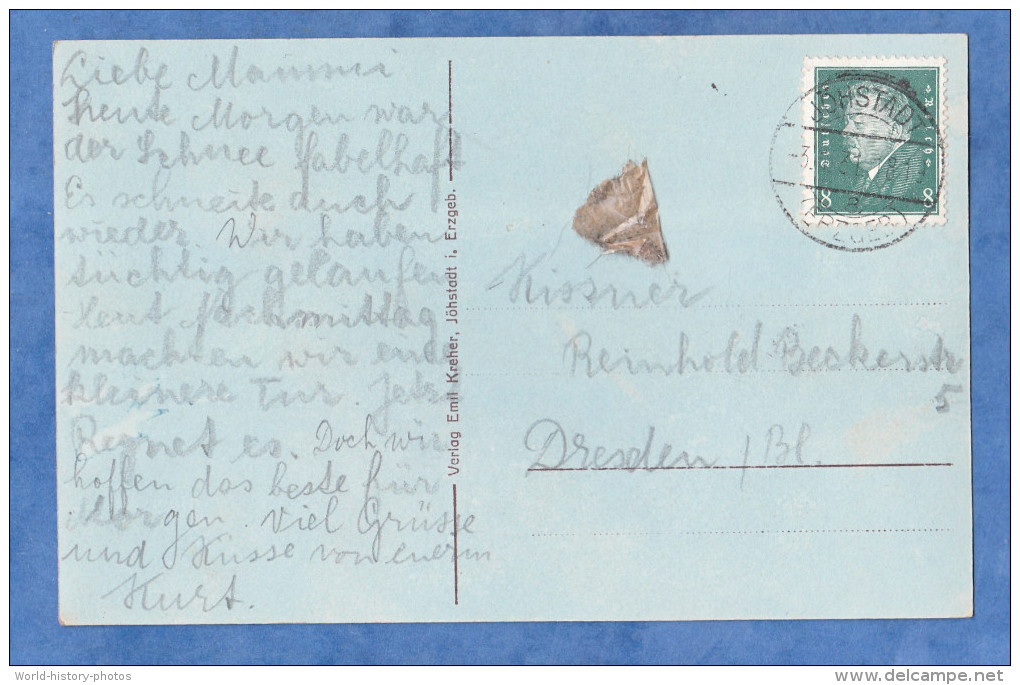 Liebe Mammi
heute Morgen war
der Schnee fabelhaft
Es schneite auch
wieder. Wir haben
tüchtig gelaufen
Heut Nachmittag
machten wir eine
kleinere Tur. Jetzt
Regnet es. Doch wir
hoffen das beste für
Morgen. Viel Grüsse
und Küsse von euerm
Kurt.
Verlag Emil Kreher, Jöhstadt i. Erzgeb.
Kissner
Reinhold Beckerstr
5
Dresden / Bl.
Deutsches Reich
8 8
JÖHSTADT
(ERZGEB)
World-history-photos
delcampe.net